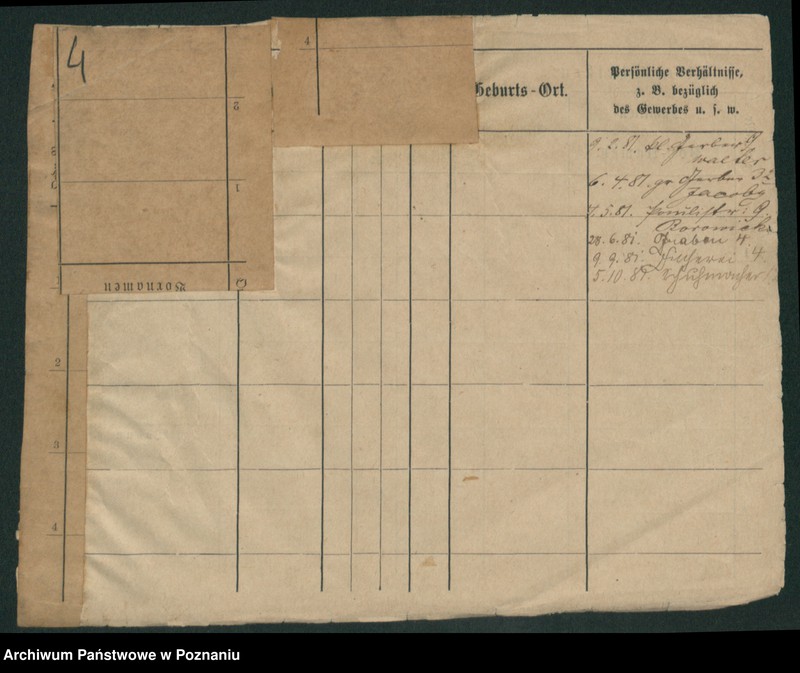 4
4
2
1
Vornamen
3
Geburts-Ort.
Persönliche Verhältnisse,
z. B. bezüglich
des Gewerbes u. s. w.
9. 2. 81. kl. Gerber
Walter
6. 4. 81. gr. Gerber
Jacoby
5. 81.
28. 6. 81. Graben 4.
9. 9. 81. Fischerei 4.
5. 10. 81. Schuhmacher
2
3
4
Archiwum Państwowe w Poznaniu